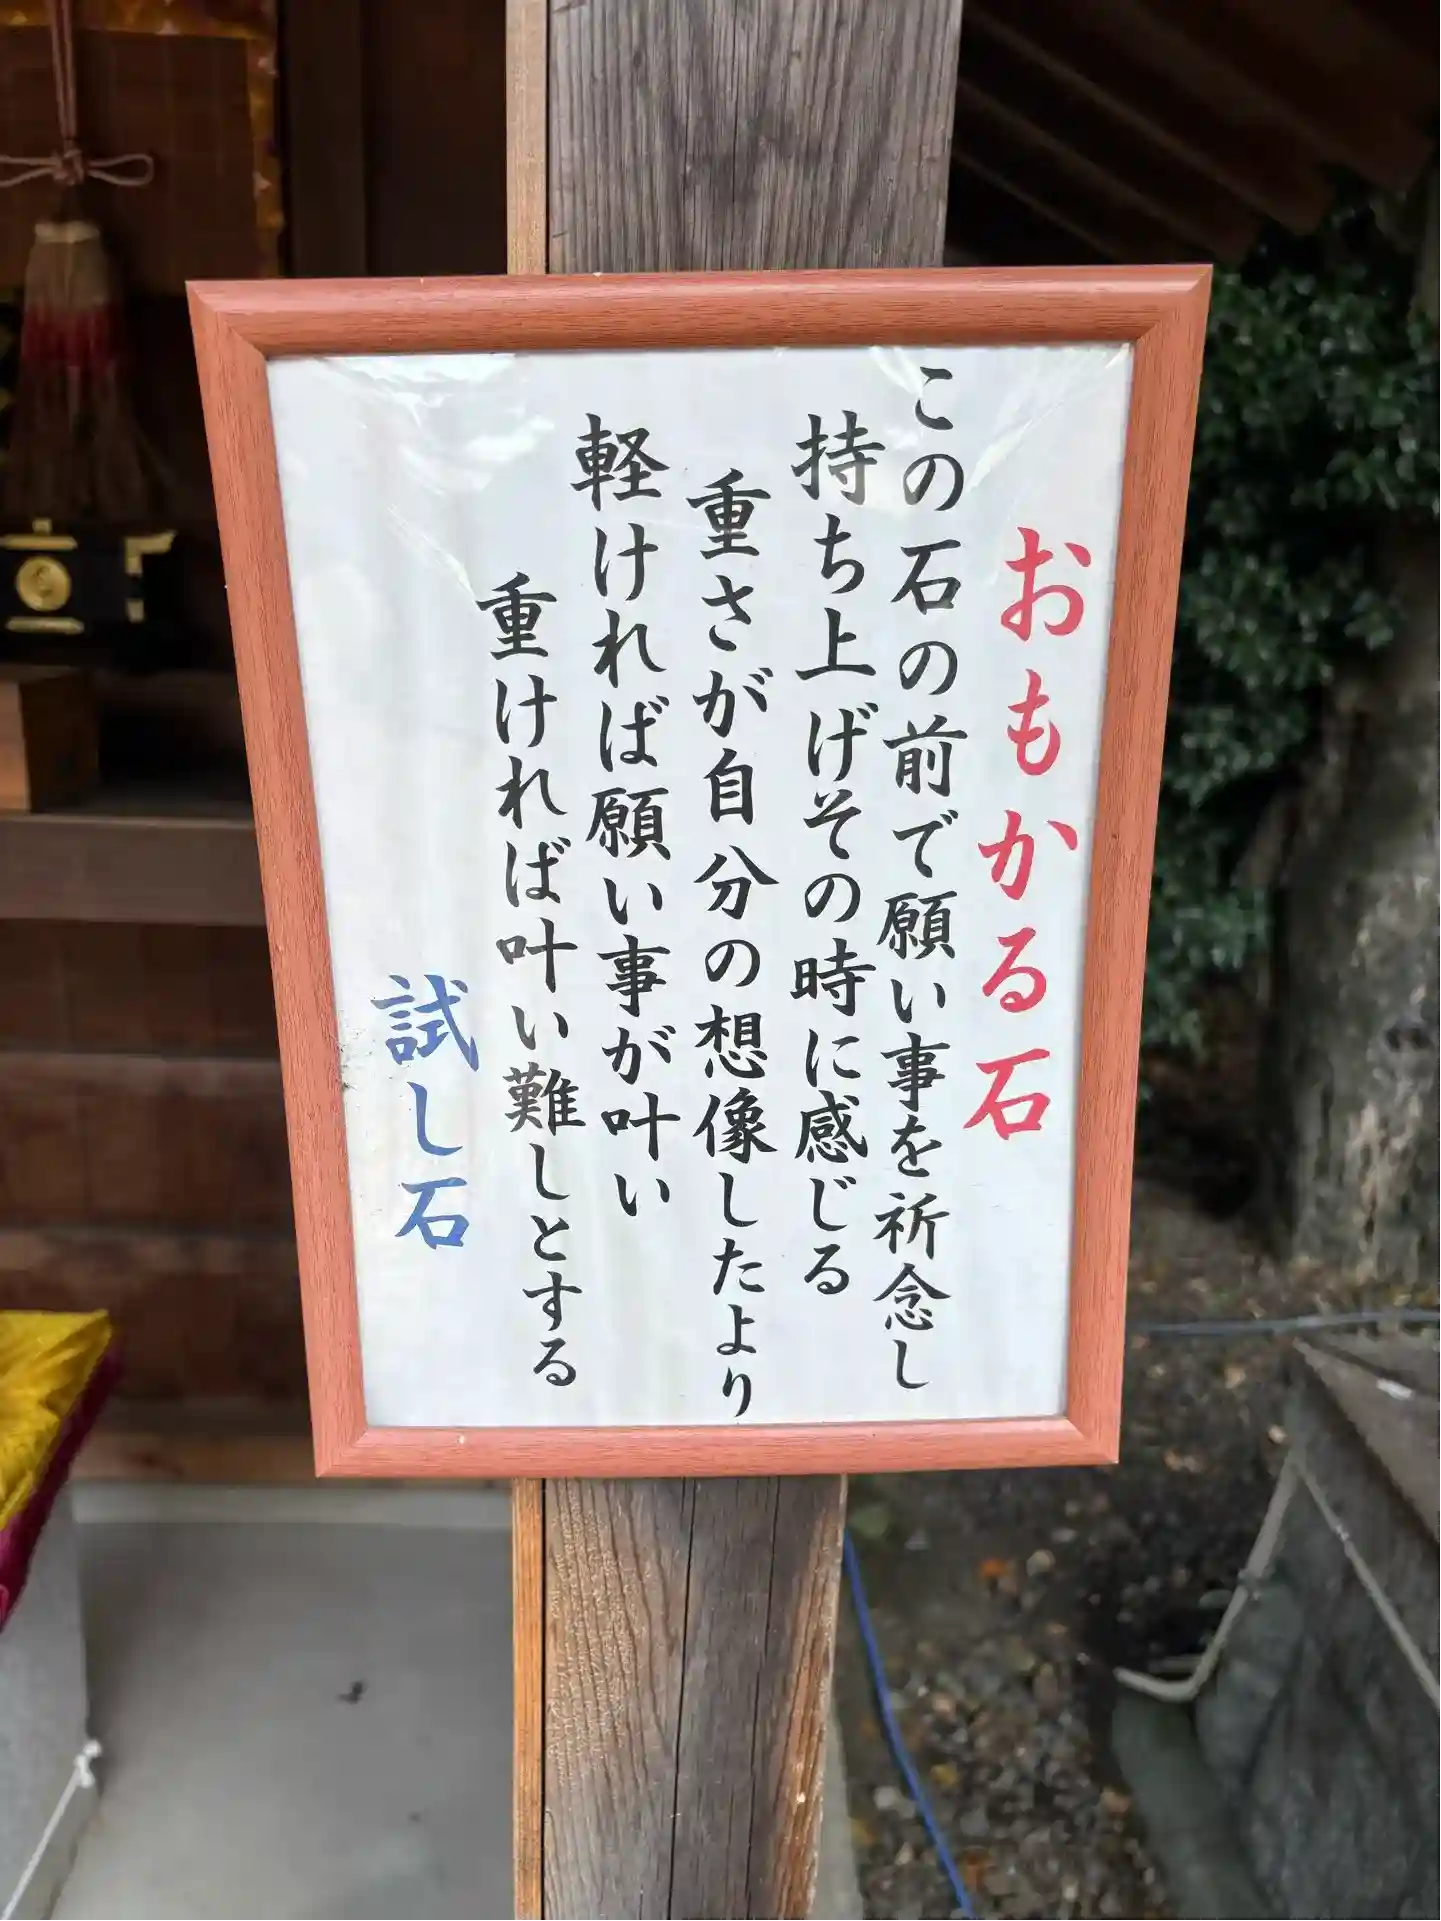 おもかる石
この石の前で願い事を祈念し
持ち上げその時に感じる
重さが自分の想像したより
軽ければ願い事が叶い
重ければ叶い難しとする
試し石